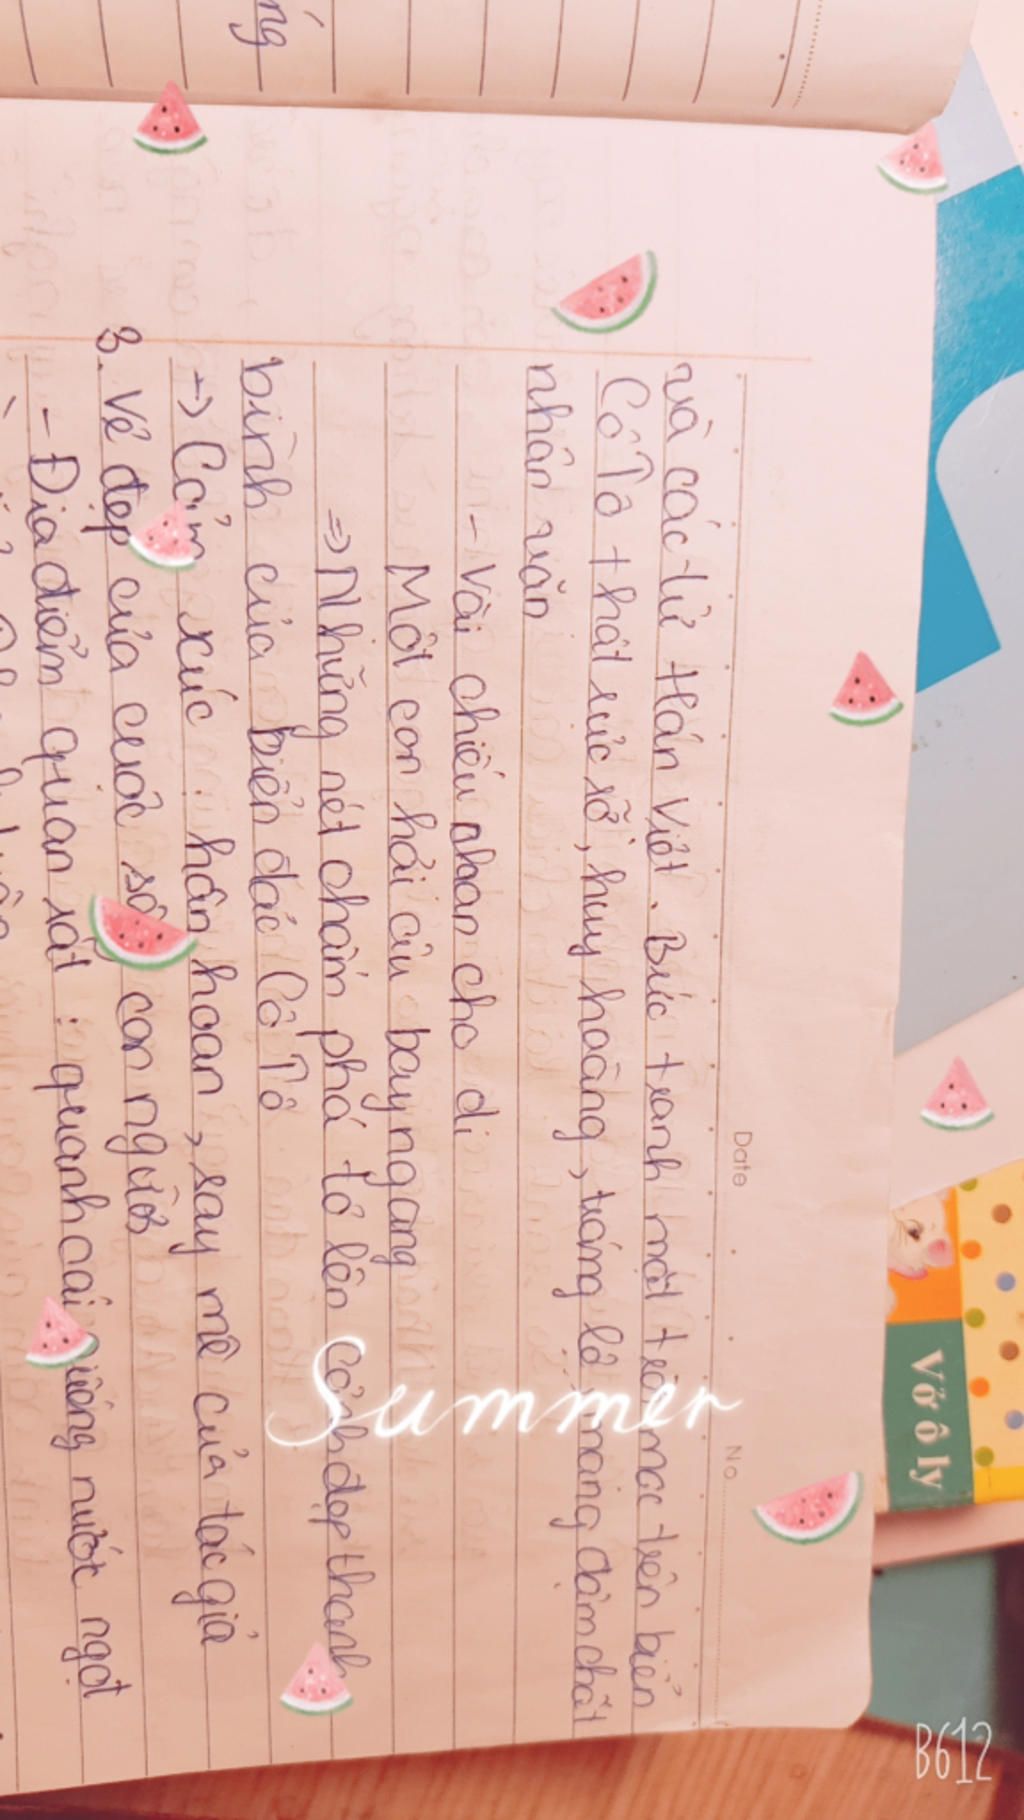 và các từ Hán Việt. Bức tranh mặt trời mọc trên biển
Cô Tô thật rực rỡ, huy hoàng, tráng lệ mang đậm chất
nhân văn
- Vài chiếu nhan cho di
Một con hải âu bay ngang
=> Những nét chấm phá tô lên cảnh đẹp thanh
bình của biển đảo Cô Tô
-> Cảm xúc: hân hoan, say mê của tác giả
3. Vẻ đẹp của cuộc con người
- Địa điểm quan sát: quanh cái giếng nước ngọt
Date
No
Summer
Vở ô ly
B612